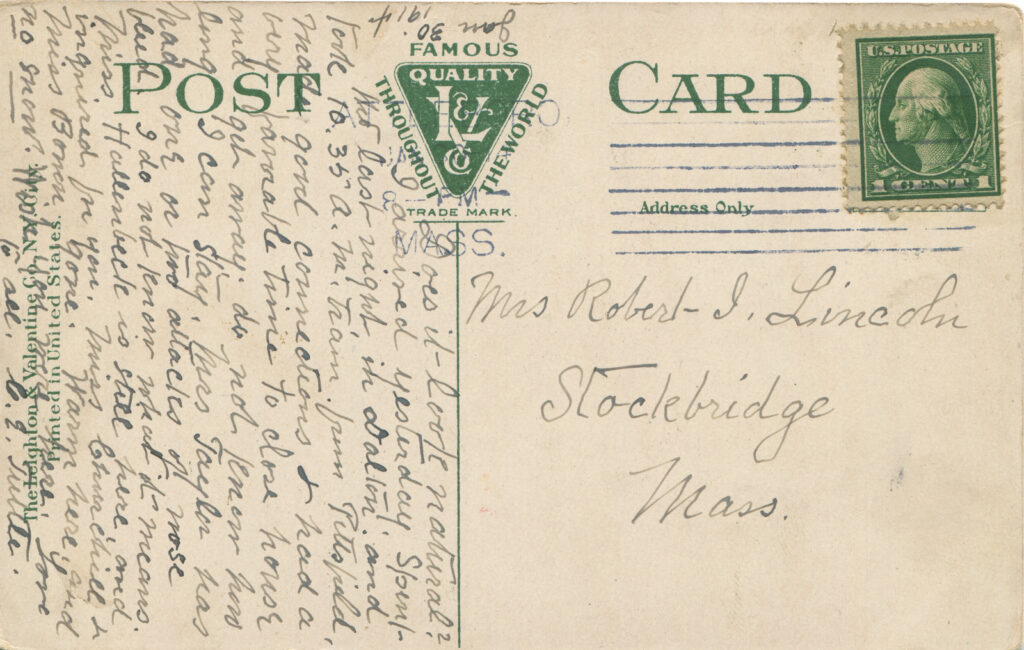 Jan. 30.
1914
POST CARD
FAMOUS
QUALITY
L & V
Co
THROUGHOUT
THE WORLD
TRADE MARK.
U.S. POSTAGE
1 CENT 1
PM
MASS.
Address Only
Mrs Robert I. Lincoln
Stockbridge
Mass.
Does it look natural?
I arrived yesterday. Spent
last night in Dalton, and
took 10.35 a.m. train from Pittsfield,
made good connections & had a
very favorable time to close house
and get away. do not know how
long I can stay. Mrs Taylor has
had one or two attacks of nose
bleed I do not know what it means.
Miss Hallenbeck is still here, and
inquired for you. Miss Churchill &
Miss Bowen gone. Warm here, and
no snow. Love
to all.
The Leighton & Valentine Co., N.Y. City.
Printed in United States.